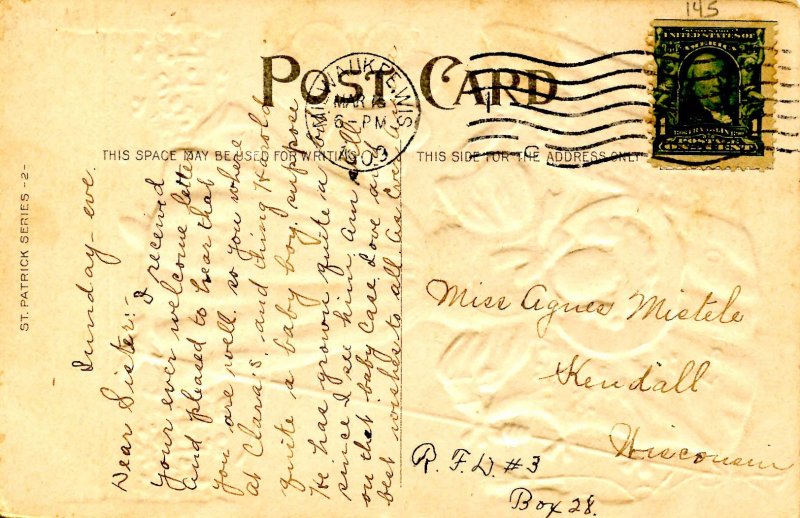 145
POST CARD
MILWAUKEE, WIS
MAR 15
6 - PM
1909
UNITED STATES OF
AMERICA
POSTAGE
ONE CENT
THIS SPACE MAY BE USED FOR WRITING
THIS SIDE FOR THE ADDRESS ONLY
ST. PATRICK SERIES -2-
Sunday - eve.
Dear Sister:-
I received
your ever welcome letter
and pleased to hear that
you are well. so you where
at Clara's. and thing Harold
quite a baby boy. suppose
He has grown quite a bit
since I see him. Am still
on that baby case. Love and
best wishes to all As Ever
Miss Agnes Mistele
Kendall
Wisconsin
R. F. D. #3
Box 28.